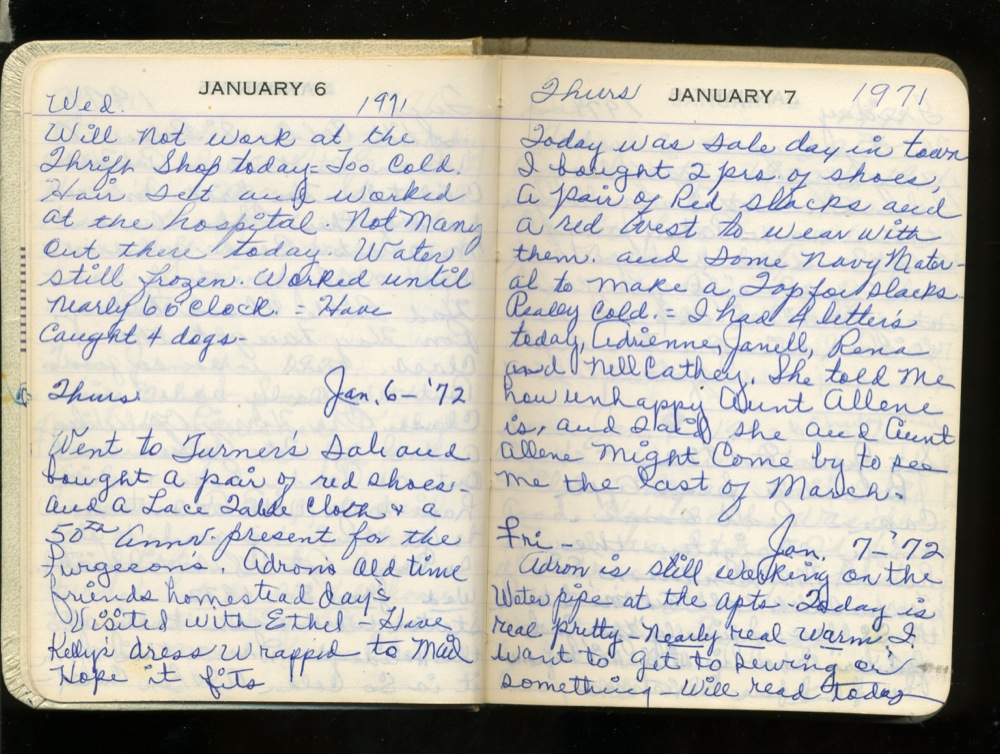 JANUARY 6
Wed. 1971
Will not work at the
Thrift Shop today = Too Cold.
Hair set and worked
at the hospital. Not Many
out there today. Water
still frozen. Worked until
nearly 6 o'clock. = Have
Caught 4 dogs-
Thurs. Jan. 6-'72
Went to Turner's Sale and
bought a pair of red shoes-
and a Lace Table Cloth & a
50th Annv. present for the
Furgeeon's. Adron's old time
friends homestead day's
Visited with Ethel - Have
Kelly's dress wrapped to Mail
Hope it fits
Thurs JANUARY 7 1971
Today was Sale day in town
I bought 2 prs. of shoes,
a pair of Red slacks and
a red vest to wear with
them. and some navy Mater-
al to make a Top for slacks.
Really Cold. = I had 4 letter's
today, Adrienne, Janell, Rena
and Nell Cathey. She told me
how unhappy Aunt Allene
is, and said she and Aunt
Allene Might Come by to see
me the last of March.
Fri - Jan. 7-'72
Adron is still working on the
Water pipe at the apts - Today is
real pretty - nearly real warm I
want to get to sewing or
something - Will read today